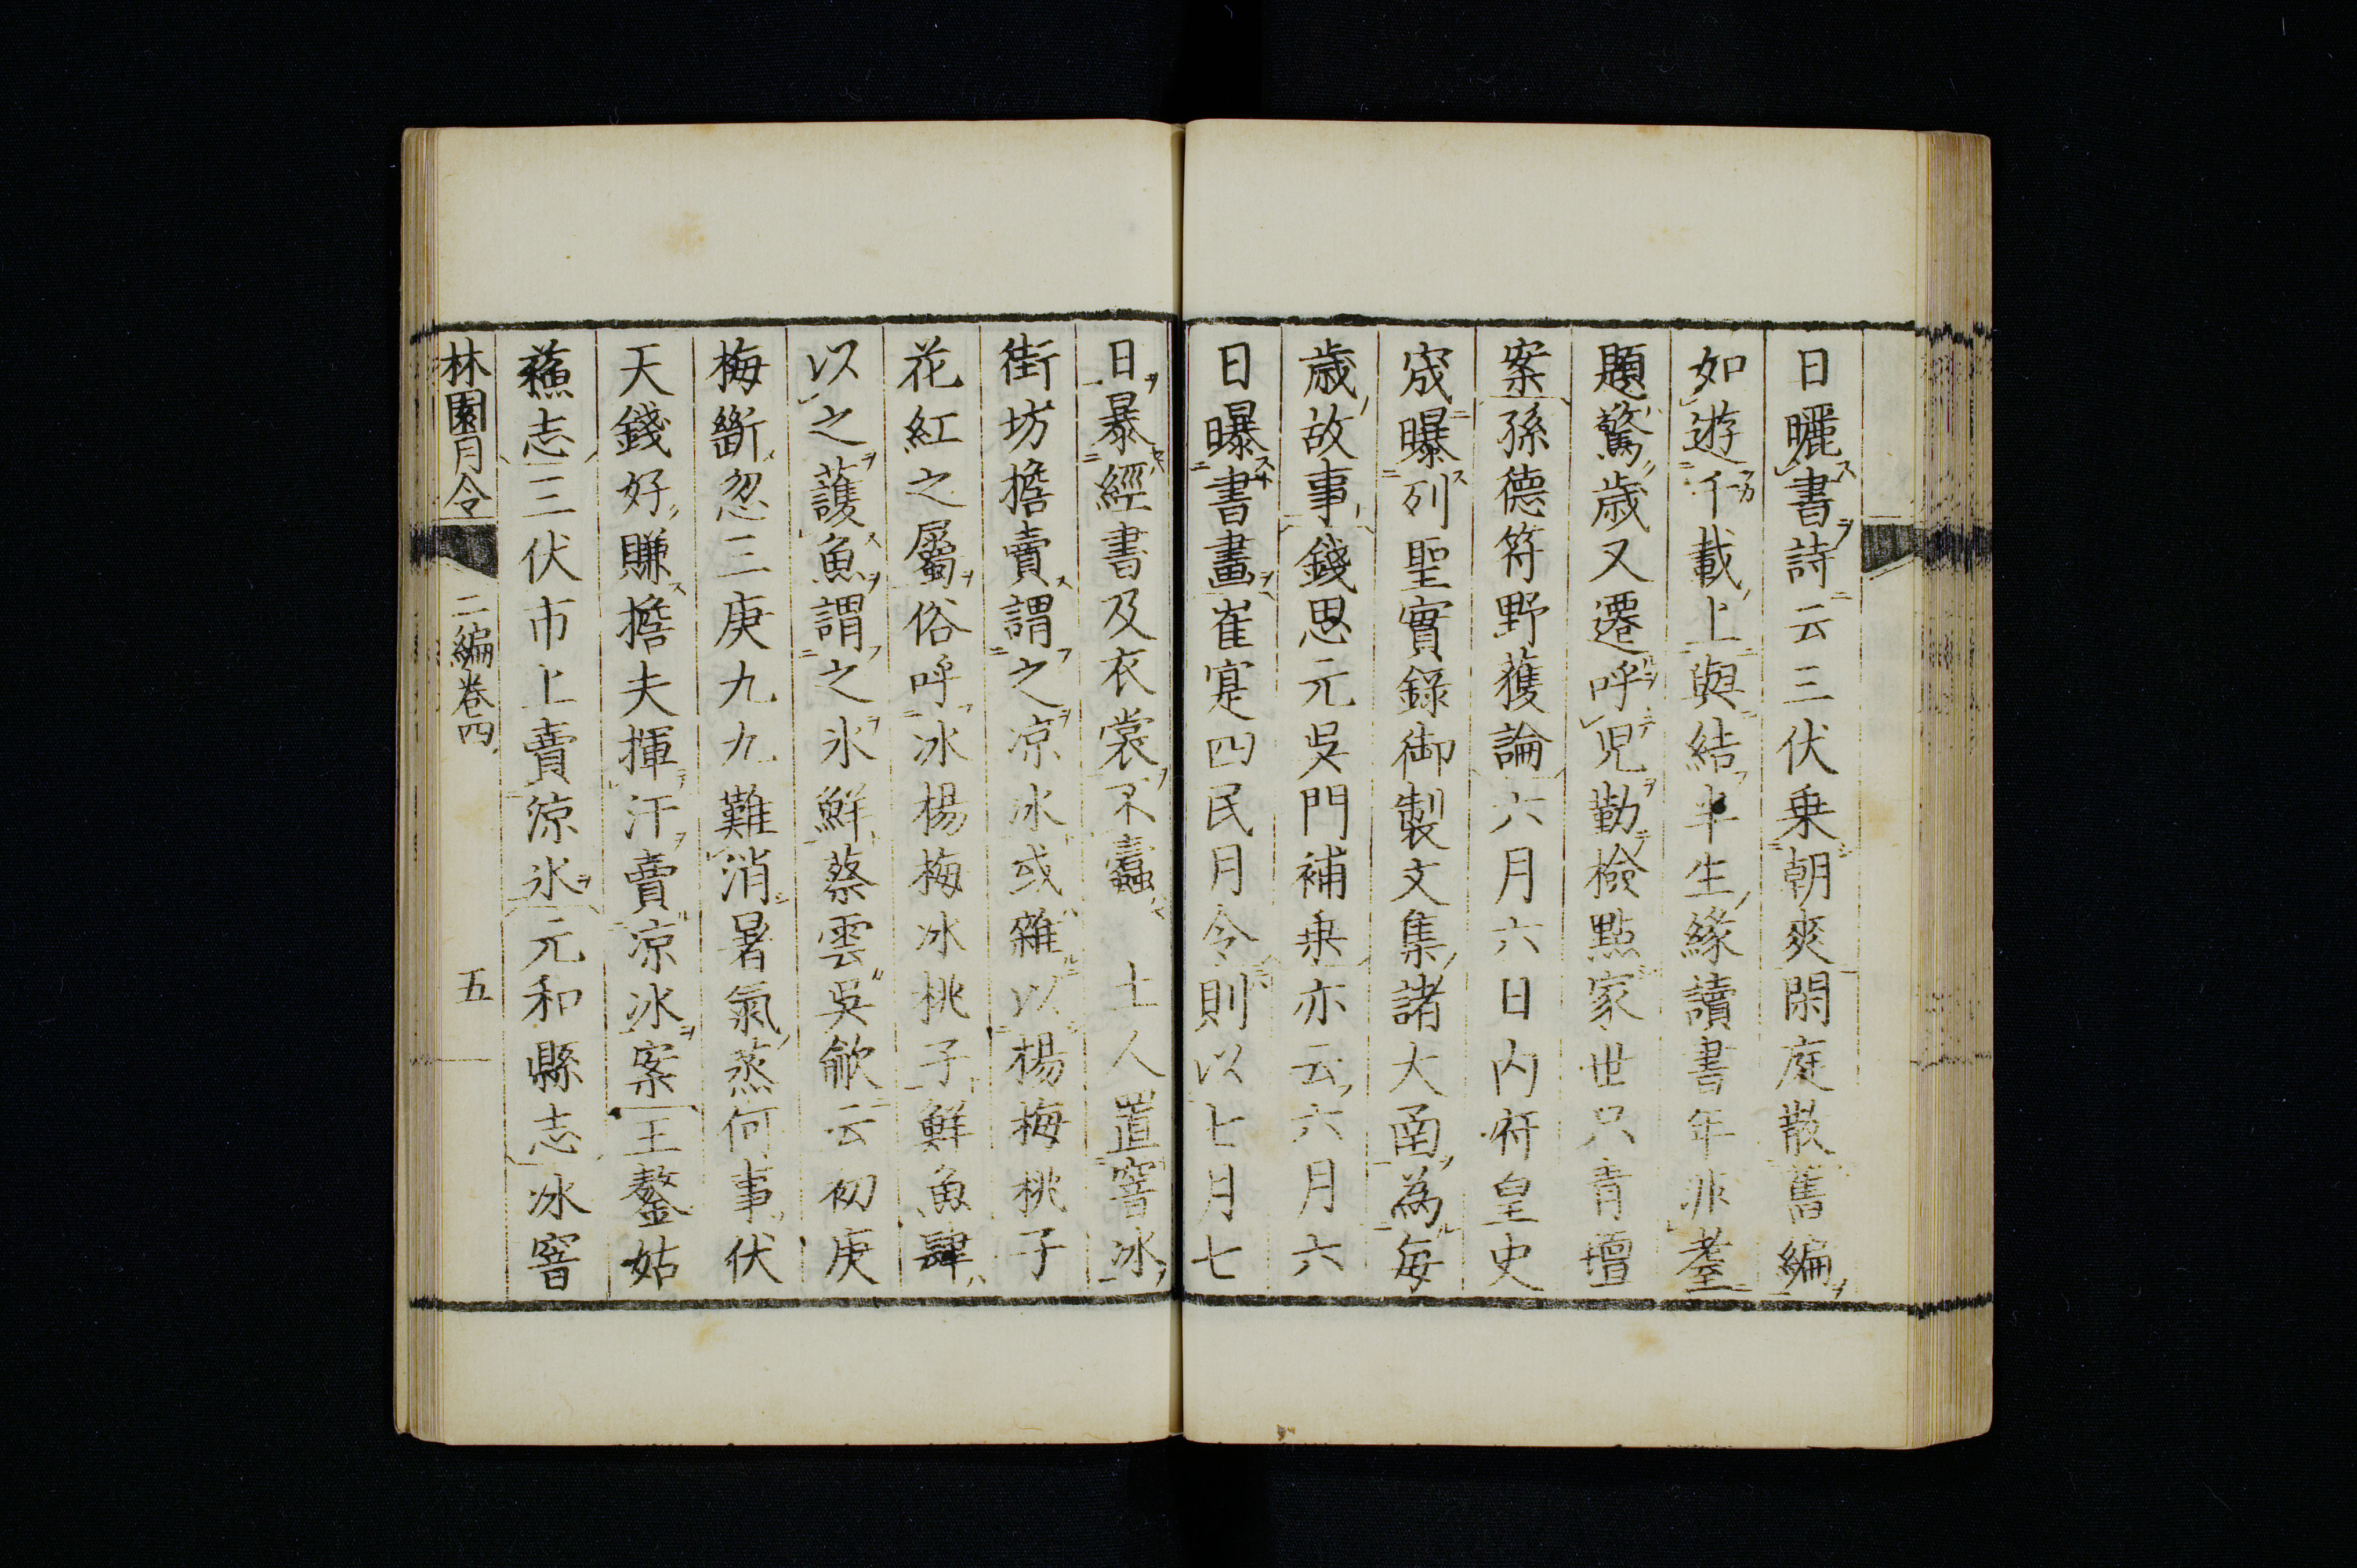 日曬書詩云三伏乗朝爽閑庭散舊編
如遊千載上與結半生緣讀書年非耋
題驚歳又遷呼児勤檢點家世只青
案孫德符野獲論六月六日内府皇史
宬曝列聖實錄御製文集諸大凾為毎
歳故事錢思元吳門補乗亦云六月六
日曝書畫崔寔四民月令則以七月七
日暴經書及衣裳不蠹　土人置窖冰
街坊擔賣謂之凉冰或雜以楊梅桃子
花紅之屬俗呼冰楊梅冰桃子鮮魚肆
以之護魚謂之氷鮮蔡雲吳歈云初庚
梅斷忽三庚九九難消暑氣蒸何事伏
天錢好賺擔夫揮汗賣凉冰案王鏊姑
蘓志三伏市上賣凉氷元和縣志冰窖
林園月令 二編卷四 五